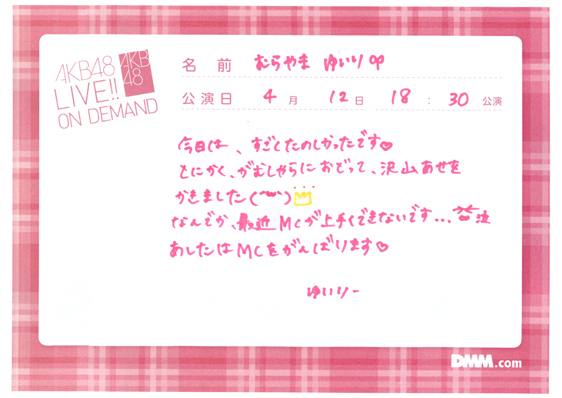 AKB48
LIVE!!
ON DEMAND
AKB
48
名前 むらやま ゆいり
公演日 4月 12日 18:30 公演
今日は、すごくたのしかったです♡
とにかく、がむしゃらにおどって、沢山あせを
かきました
なんでか、最近MCが上手くできないです... 泣
あしたはMCをがんばります♡
ゆいりー
DMM.com